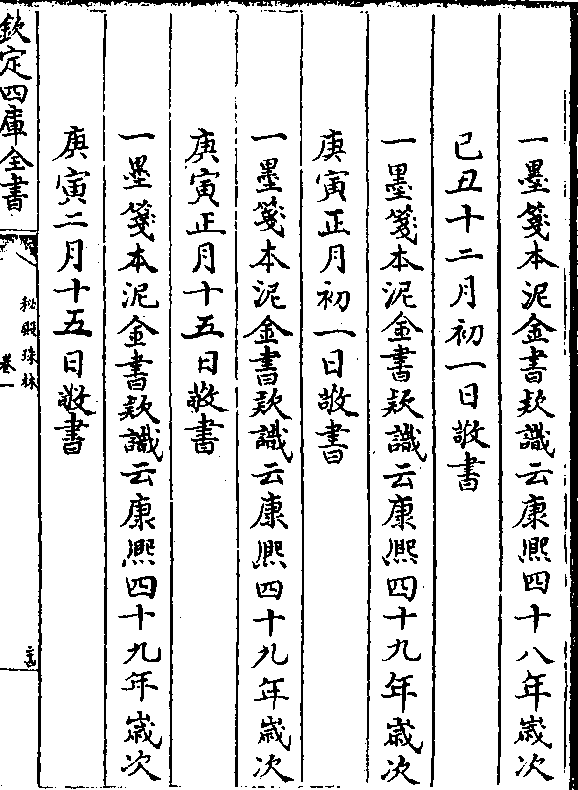 一墨箋本泥金書款識云康熙四十八年歲次
己丑十二月初一日敬書
一墨箋本泥金書款識云康熙四十九年歲次
庚寅正月初一日敬書
一墨箋本泥金書款識云康熙四十九年歲次
庚寅正月十五日敬書
一墨箋本泥金書款識云康熙四十九年歲次
庚寅二月十五日敬書
欽定四庫全書
秘殿珠林
卷一